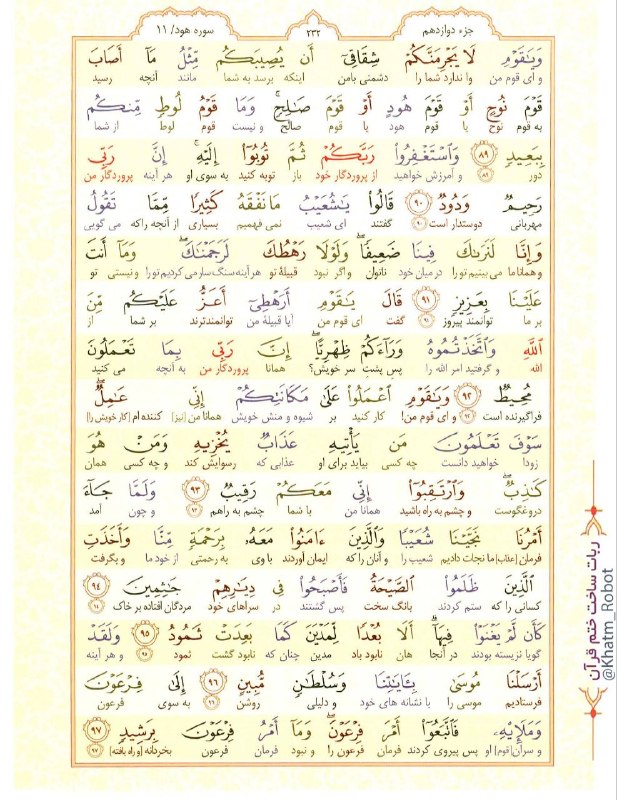 جزء دوازدهم
۲۳۲
سوره هود/ ۱۱
وَيَـٰقَوْمِ لَا يَجْرِمَنَّكُمْ شِقَاقِىٓ أَن يُصِيبَكُم مِّثْلُ مَآ أَصَابَ
و ای قوم من وا ندارد شما را دشمنی بامن اینکه برسد به شما مانند آنچه رسید
قَوْمَ نُوحٍ أَوْ قَوْمَ هُودٍ أَوْ قَوْمَ صَـٰلِحٍ ۚ وَمَا قَوْمُ لُوطٍ مِّنكُم
به قوم نوح یا قوم هود یا قوم صالح و نیست قوم لوط از شما
بِبَعِيدٍ ۸۹ وَٱسْتَغْفِرُوا۟ رَبَّكُمْ ثُمَّ تُوبُوٓا۟ إِلَيْهِ ۚ إِنَّ رَبِّى
دور ۸۹ و آمرزش خواهید از پروردگار خود باز توبه کنید به سوی او هر آینه پروردگار من
رَحِيمٌ وَدُودٌ ۹۰ قَالُوا۟ يَـٰشُعَيْبُ مَا نَفْقَهُ كَثِيرًا مِّمَّا تَقُولُ
مهربانی دوستدار است ۹۰ گفتند ای شعیب نمی فهمیم بسیاری از آنچه راکه می گویی
وَإِنَّا لَنَرَىٰكَ فِينَا ضَعِيفًا ۖ وَلَوْلَا رَهْطُكَ لَرَجَمْنَـٰكَ ۖ وَمَآ أَنتَ
و همانا ما می بینیم تو را در میان خود ناتوان و اگر نبود قبیلهٔ تو هر آینه سنگ سار می کردیم تو را و نیستی تو
عَلَيْنَا بِعَزِيزٍ ۹۱ قَالَ يَـٰقَوْمِ أَرَهْطِىٓ أَعَزُّ عَلَيْكُم مِّنَ
بر ما توانمند پیروز ۹۱ گفت ای قوم من آیا قبیلهٔ من توانمندترند بر شما از
ٱللَّهِ وَٱتَّخَذْتُمُوهُ وَرَآءَكُمْ ظِهْرِيًّا ۖ إِنَّ رَبِّى بِمَا تَعْمَلُونَ
الله و گرفتید امر الله را پس پشتِ سر خویش؟ همانا پروردگار من به آنچه می کنید
مُحِيطٌ ۹۲ وَيَـٰقَوْمِ ٱعْمَلُوا۟ عَلَىٰ مَكَانَتِكُمْ إِنِّى عَـٰمِلٌ ۖ
فراگیرنده است ۹۲ و ای قوم من! کار کنید بر شیوه و منش خویش همانا من [نیز] کننده ام [کار خویش را]
سَوْفَ تَعْلَمُونَ مَن يَأْتِيهِ عَذَابٌ يُخْزِيهِ وَمَنْ هُوَ
زودا خواهید دانست چه کسی بیاید برای او عذابی که رسوایش کند و چه کسی همان
كَـٰذِبٌ ۖ وَٱرْتَقِبُوٓا۟ إِنِّى مَعَكُمْ رَقِيبٌ ۹۳ وَلَمَّا جَآءَ
دروغگوست و چشم به راه باشید همانا من با شما چشم به راهم ۹۳ و چون آمد
أَمْرُنَا نَجَّيْنَا شُعَيْبًا وَٱلَّذِينَ ءَامَنُوا۟ مَعَهُۥ بِرَحْمَةٍ مِّنَّا وَأَخَذَتِ
فرمان [عذاب] ما نجات دادیم شعیب را و آنان را که ایمان آوردند با وی به رحمتی از خود ما و بگرفت
ٱلَّذِينَ ظَلَمُوا۟ ٱلصَّيْحَةُ فَأَصْبَحُوا۟ فِى دِيَـٰرِهِمْ جَـٰثِمِينَ ۹۴
کسانی را که ستم کردند بانگ سخت پس گشتند در سراهای خود مردگان افتاده بر خاک ۹۴
كَأَن لَّمْ يَغْنَوْا۟ فِيهَآ ۗ أَلَا بُعْدًا لِّمَدْيَنَ كَمَا بَعِدَتْ ثَمُودُ ۹۵ وَلَقَدْ
گویا نزیسته بودند در آنجا هان نابود باد مدین چنان که نابود گشت ثمود ۹۵ و هر آینه
أَرْسَلْنَا مُوسَىٰ بِـَٔايَـٰتِنَا وَسُلْطَـٰنٍ مُّبِينٍ ۹۶ إِلَىٰ فِرْعَوْنَ
فرستادیم موسی را با نشانه های خود و دلیلی روشن ۹۶ به سوی فرعون
وَمَلَإِي۟هِۦ فَٱتَّبَعُوٓا۟ أَمْرَ فِرْعَوْنَ ۖ وَمَآ أَمْرُ فِرْعَوْنَ بِرَشِيدٍ ۹۷
و سران [قوم] او پس پیروی کردند فرمان فرعون را و نبود فرمان فرعون بخردانه [و راه یافته] ۹۷
ربات ساخت ختم قرآن
@Khatm_Robot